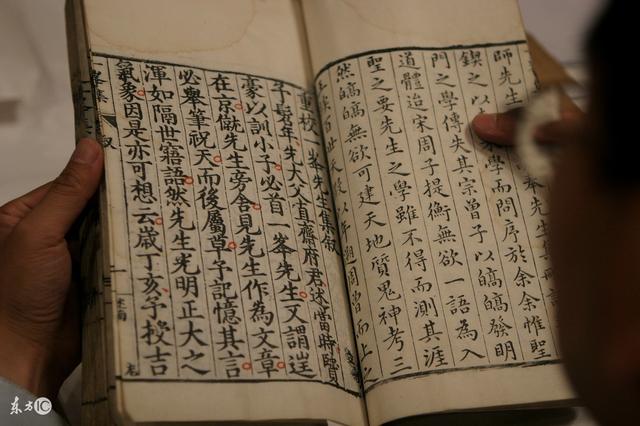 師先生奉先生
鍥之以家學而問序於余余惟聖
門之學傳失其宗曾子以皜皜發明
道體迨宋周子提衡無欲一語為入
聖之要先生之學雖不得而測其涯
然皜皜無欲可建天地質鬼神考三
百世周而上之
重校峯先生集叙
予髫年先大父直齋府君述當時賢
豪以訓小子必首一峯先生又謂迋
在京僦先生旁舍見先生作為文章
必舉筆祝天而後屬草予記憶其言
渾如隔世寤語然先生光明正大之
氣象因是亦可想云歲丁亥予授吉
东方IC